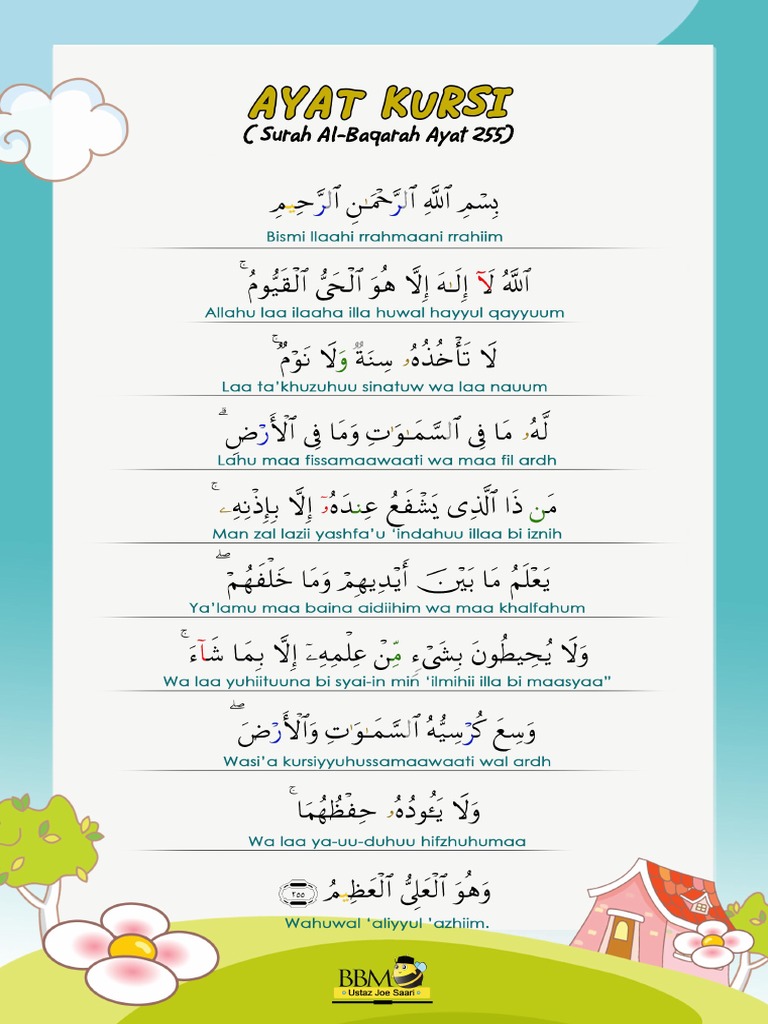 AYAT KURSI
( Surah Al-Baqarah Ayat 255)
بِسْمِ ٱللَّهِ ٱلرَّحْمَـٰنِ ٱلرَّحِيمِ
Bismi llaahi rrahmaani rrahiim
ٱللَّهُ لَآ إِلَـٰهَ إِلَّا هُوَ ٱلْحَىُّ ٱلْقَيُّومُ ۚ
Allahu laa ilaaha illa huwal hayyul qayyuum
لَا تَأْخُذُهُۥ سِنَةٌ وَلَا نَوْمٌ ۚ
Laa ta’khuzuhuu sinatuw wa laa nauum
لَّهُۥ مَا فِى ٱلسَّمَـٰوَٰتِ وَمَا فِى ٱلْأَرْضِ ۗ
Lahu maa fissamaawaati wa maa fil ardh
مَن ذَا ٱلَّذِى يَشْفَعُ عِندَهُۥٓ إِلَّا بِإِذْنِهِۦ ۚ
Man zal lazii yashfa’u ‘indahuu illaa bi iznih
يَعْلَمُ مَا بَيْنَ أَيْدِيهِمْ وَمَا خَلْفَهُمْ ۖ
Ya’lamu maa baina aidiihim wa maa khalfahum
وَلَا يُحِيطُونَ بِشَىْءٍ مِّنْ عِلْمِهِۦٓ إِلَّا بِمَا شَآءَ ۚ
Wa laa yuhiituuna bi syai-in min ‘ilmihii illa bi maasyaa”
وَسِعَ كُرْسِيُّهُ ٱلسَّمَـٰوَٰتِ وَٱلْأَرْضَ ۖ
Wasi’a kursiyyuhussamaawaati wal ardh
وَلَا يَـُٔودُهُۥ حِفْظُهُمَا ۚ
Wa laa ya-uu-duhuu hifzhuhumaa
وَهُوَ ٱلْعَلِىُّ ٱلْعَظِيمُ ٢٥٥
Wahuwal ‘aliyyul ‘azhiim.
BBM
Ustaz Joe Saari